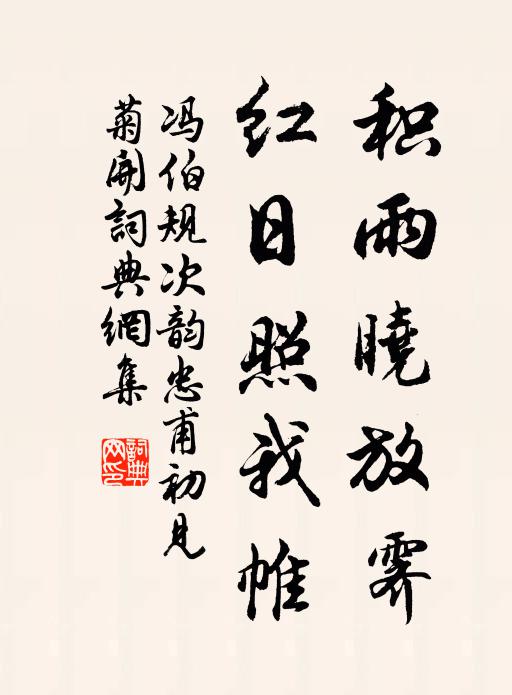 积雨曉放霁
红日照我帷
冯伯规次韵忠甫初见
菊开詞典網集
詞典
网印